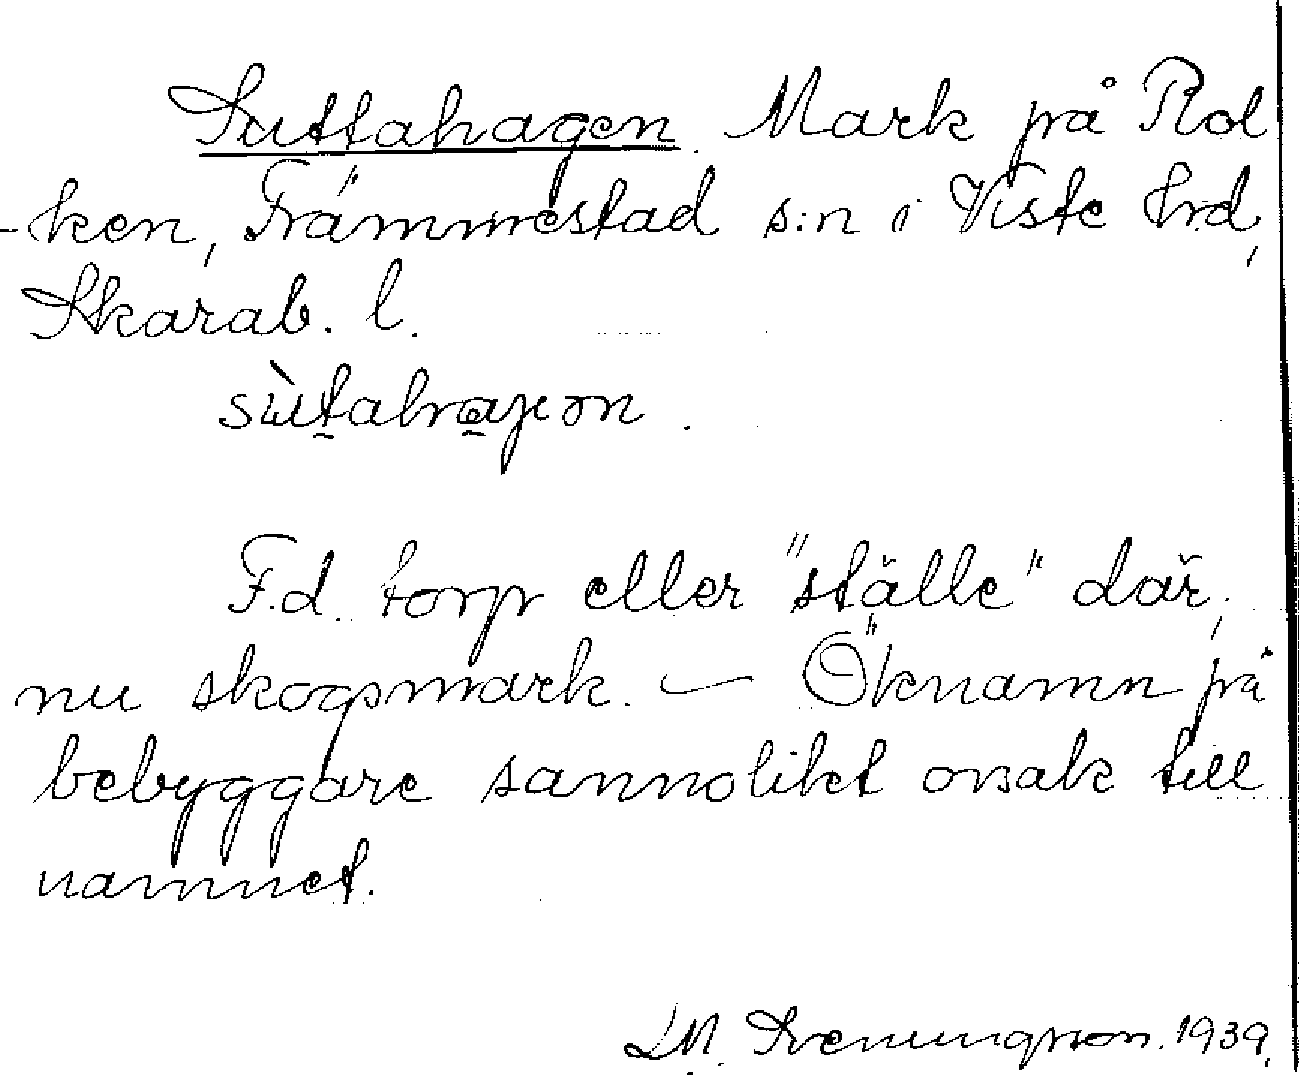 Suttahagen. Mark på Rol
-ken, Främmestad s:n i Viste hrd,
Skarab. l.
F.d. torp eller "ställe" där,
nu skogsmark. — Öknamn på
bebyggare sannolikt orsak till
namnet.
LM. Svenungsson. 1939.